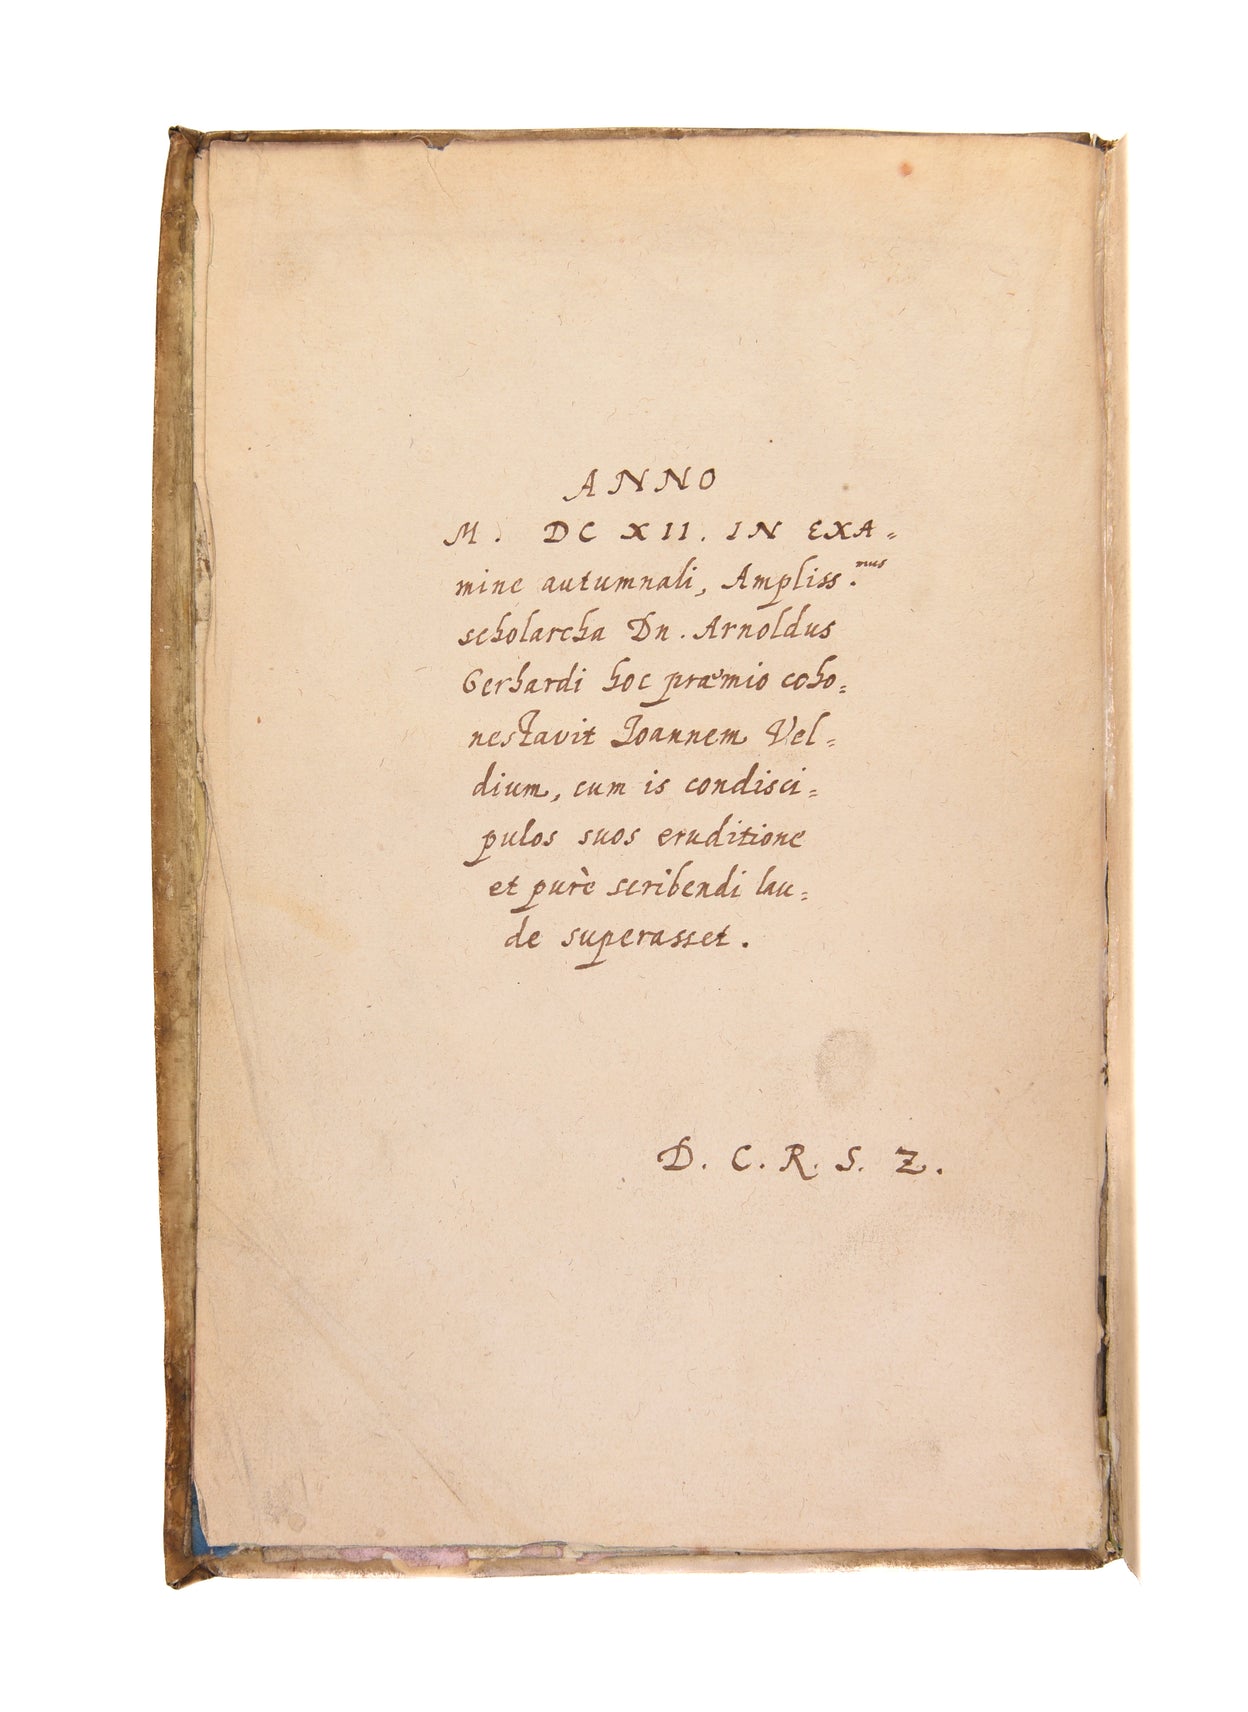 ANNO
M. DC XII. IN EXA=
mine autumnali, Ampliss.mus
scholarcha Dn. Arnoldus
Gerhardi hoc præmio coho=
nestavit Joannem Vel=
dium, cum is condisci=
pulos suos eruditione
et purè scribendi lau=
de superasset.
D. C. R. S. Z.